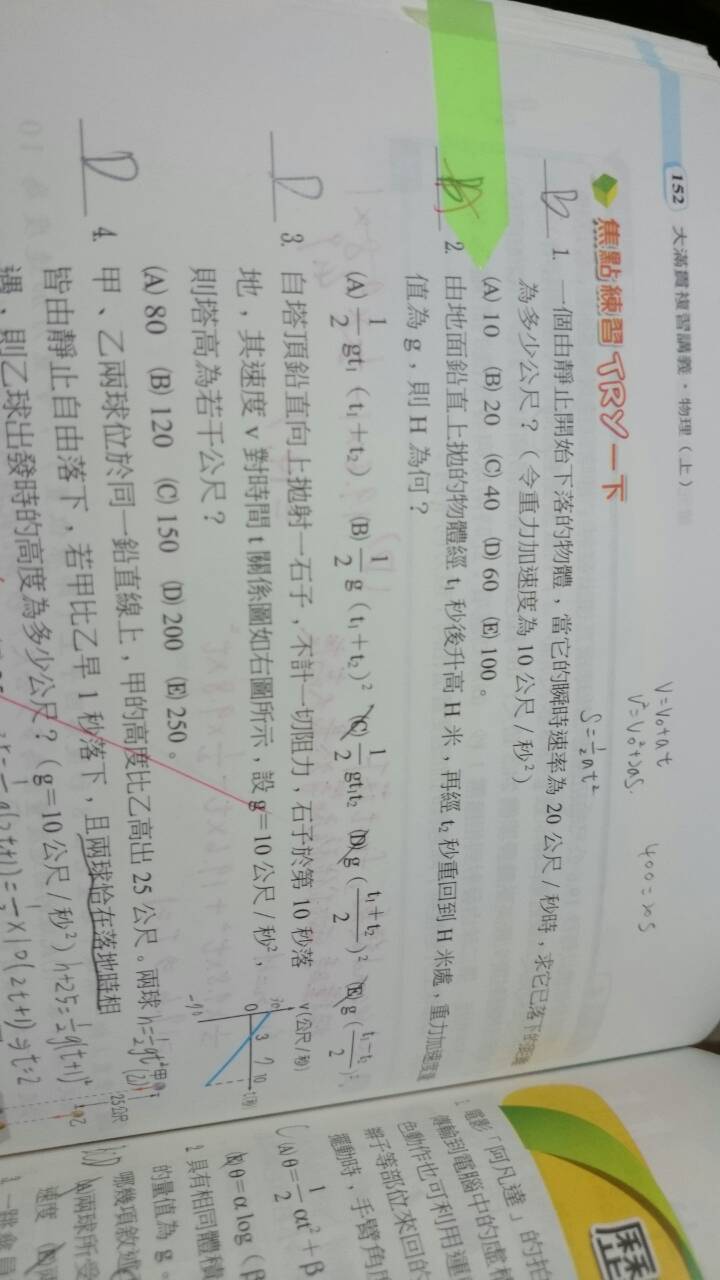 152 大滿貫複習講義・物理（上）
V=V₀+at
V²=V₀²+2as.
400=20S
焦點練習 TRY一下
S=½at²
B 1. 一個由靜止開始下落的物體，當它的瞬時速率為 20 公尺／秒時，求它已落下的距離
為多少公尺？（令重力加速度為 10 公尺／秒²）
(A) 10 (B) 20 (C) 40 (D) 60 (E) 100。
2. 由地面鉛直上拋的物體經 t₁ 秒後升高 H 米，再經 t₂ 秒重回到 H 米處，重力加速度量
值為 g，則 H 為何？
(A) ½ gt₁（t₁＋t₂） (B) ½ g（t₁＋t₂）² (C) ½ gt₁t₂ (D) g（(t₁＋t₂)/2）² (E) g（(t₁－t₂)/2）²。
D 3. 自塔頂鉛直向上拋射一石子，不計一切阻力，石子於第 10 秒落
地，其速度 v 對時間 t 關係圖如右圖所示，設 g＝10 公尺／秒²，
則塔高為若干公尺？
v(公尺／秒)
30
0 3 7 10 t(秒)
-70
(A) 80 (B) 120 (C) 150 (D) 200 (E) 250。
D 4. 甲、乙兩球位於同一鉛直線上，甲的高度比乙高出 25 公尺。兩球
皆由靜止自由落下，若甲比乙早 1 秒落下，且兩球恰在落地時相
遇，則乙球出發時的高度為多少公尺？（g＝10 公尺／秒²）
h+25=½g(t+1)²
甲
25公尺
乙
歷
1. 電影「阿凡達」的拍
傳輸到電腦中的虛
色動作也可利用運
等部位來回的
擺動時，手臂角
(A) θ＝½ αt²＋β
(B) θ＝α log（β
2. 具有相同體積
的量值為 g。
哪幾項敘述
(A) 兩球所受
速度